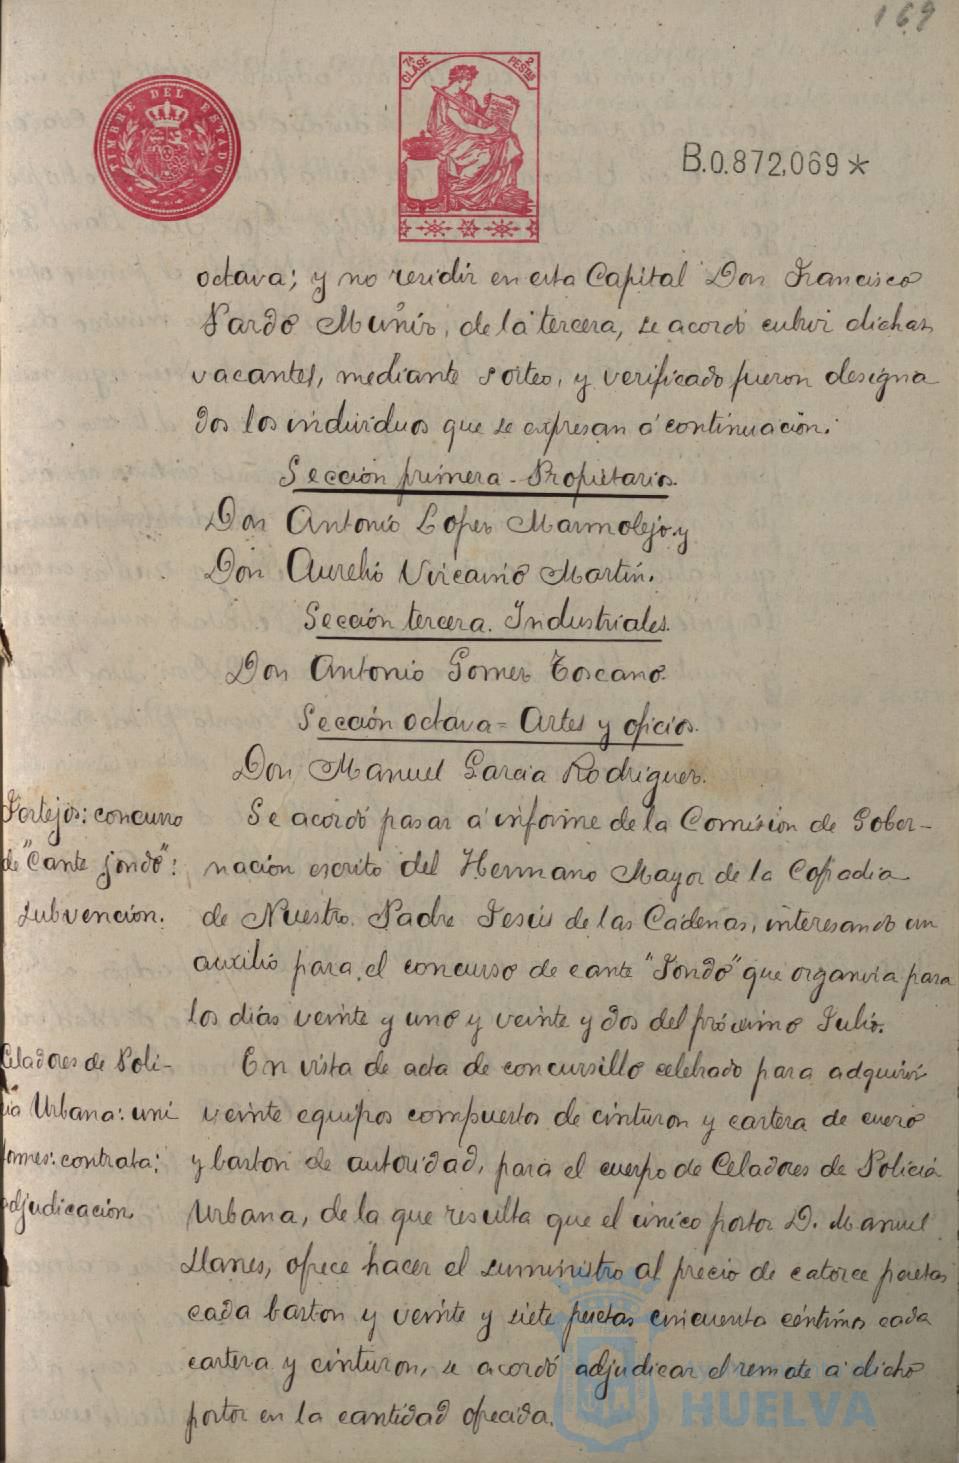 169
TIMBRE DEL ESTADO
7ª CLASE 2 PESTAS
B.0.872,069*
octava; y no residir en esta Capital Don Francisco
Pardo Muñiz, de la tercera, se acordó cubrir dichas
vacantes, mediante sorteo, y verificado fueron designa
dos los individuos que se expresan á continuación:
Sección primera - Propietarios.
Don Antonio Lopez Marmolejo y
Don Aurelio Vizcaino Martin.
Sección tercera. Industriales.
Don Antonio Gomez Toscano.
Sección octava = Artes y oficios.
Don Manuel Garcia Rodriguez.
Festejos: concurso
de "Cante jondo":
subvención.
Se acordó pasar á informe de la Comisión de Gober-
nación escrito del Hermano Mayor de la Cofradia
de Nuestro Padre Jesús de las Cadenas, interesando un
auxilio para el concurso de cante "Jondo" que organiza para
los días veinte y uno y veinte y dos del próximo Julio.
Celadores de Poli-
cia Urbana: uni
formes: contrata:
adjudicación.
En vista de acta de concursillo celebrado para adquirir
veinte equipos compuestos de cinturon y cartera de cuero
y baston de autoridad, para el cuerpo de Celadores de Policia
Urbana, de la que resulta que el único postor D. Manuel
Llanes, ofrece hacer el suministro al precio de catorce pesetas
cada baston y veinte y siete pesetas cincuenta céntimos cada
cartera y cinturon, se acordó adjudicar el remate á dicho
postor en la cantidad ofrecida.
HUELVA